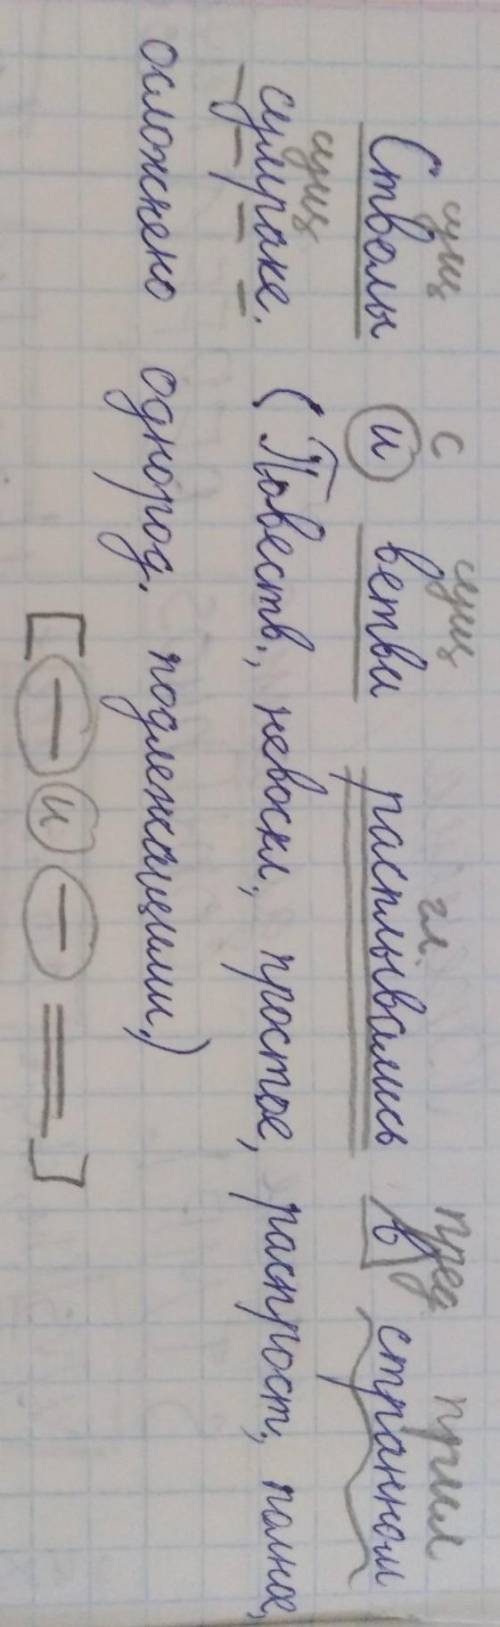 сущ с сущ гл. пред прил
Стволы и ветви расплывались в странном
сущ
сумраке. (Повеств., невоскл., простое, распрост., полное,
осложнено однород. подлежащими.)
[— и — =]